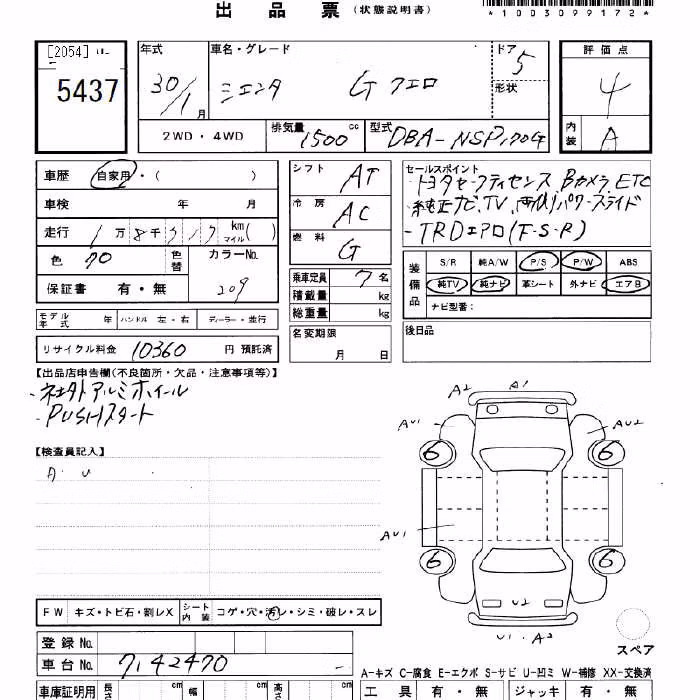 出品票 (状態説明書)
*1003099172*
[2054]
5437
年式 30/1月
車名・グレード シエンタ G クエロ
ドア 5
形状
評価点 4
内装 A
2WD・4WD
排気量 1500 cc
型式 DBA-NSP170G
車歴 自家用・( )
車検 年 月
走行 1万8千 km マイル( )
色 色替
カラーNo. 209
保証書 有・無
シフト AT
冷房 AC
燃料 G
乗車定員 7名
積載量 kg
総重量 kg
名変期限 月 日
セールスポイント
・トヨタセーフティセンス、Bカメラ、ETC
・純正ナビ、TV、両側パワースライド
・TRDエアロ(F・S・R)
装備品 S/R 純A/W P/S P/W ABS
純TV 純ナビ 革シート 外ナビ エアB
ナビ型番:
後日品
モデル年式 年 ハンドル 左・右 ディーラー・並行
リサイクル料金 10360 円 預託済
【出品店申告欄(不良箇所・欠品・注意事項等)】
・社外アルミホイール
・PUSHスタート
【検査員記入】
A・U
A2 A1
AU1 AU2
6 6
AU1
6 6
U2
U1・A2
スペア
FW キズ・トビ石・割レX シート内装 コゲ・穴・汚レ・シミ・破レ・スレ
登録No.
車台No. 7142470
A-キズ C-腐食 E-エクボ S-サビ U-凹ミ W-補修 XX-交換済
車庫証明用 長さ cm 幅 cm 高さ cm
工具 有・無 ジャッキ 有・無